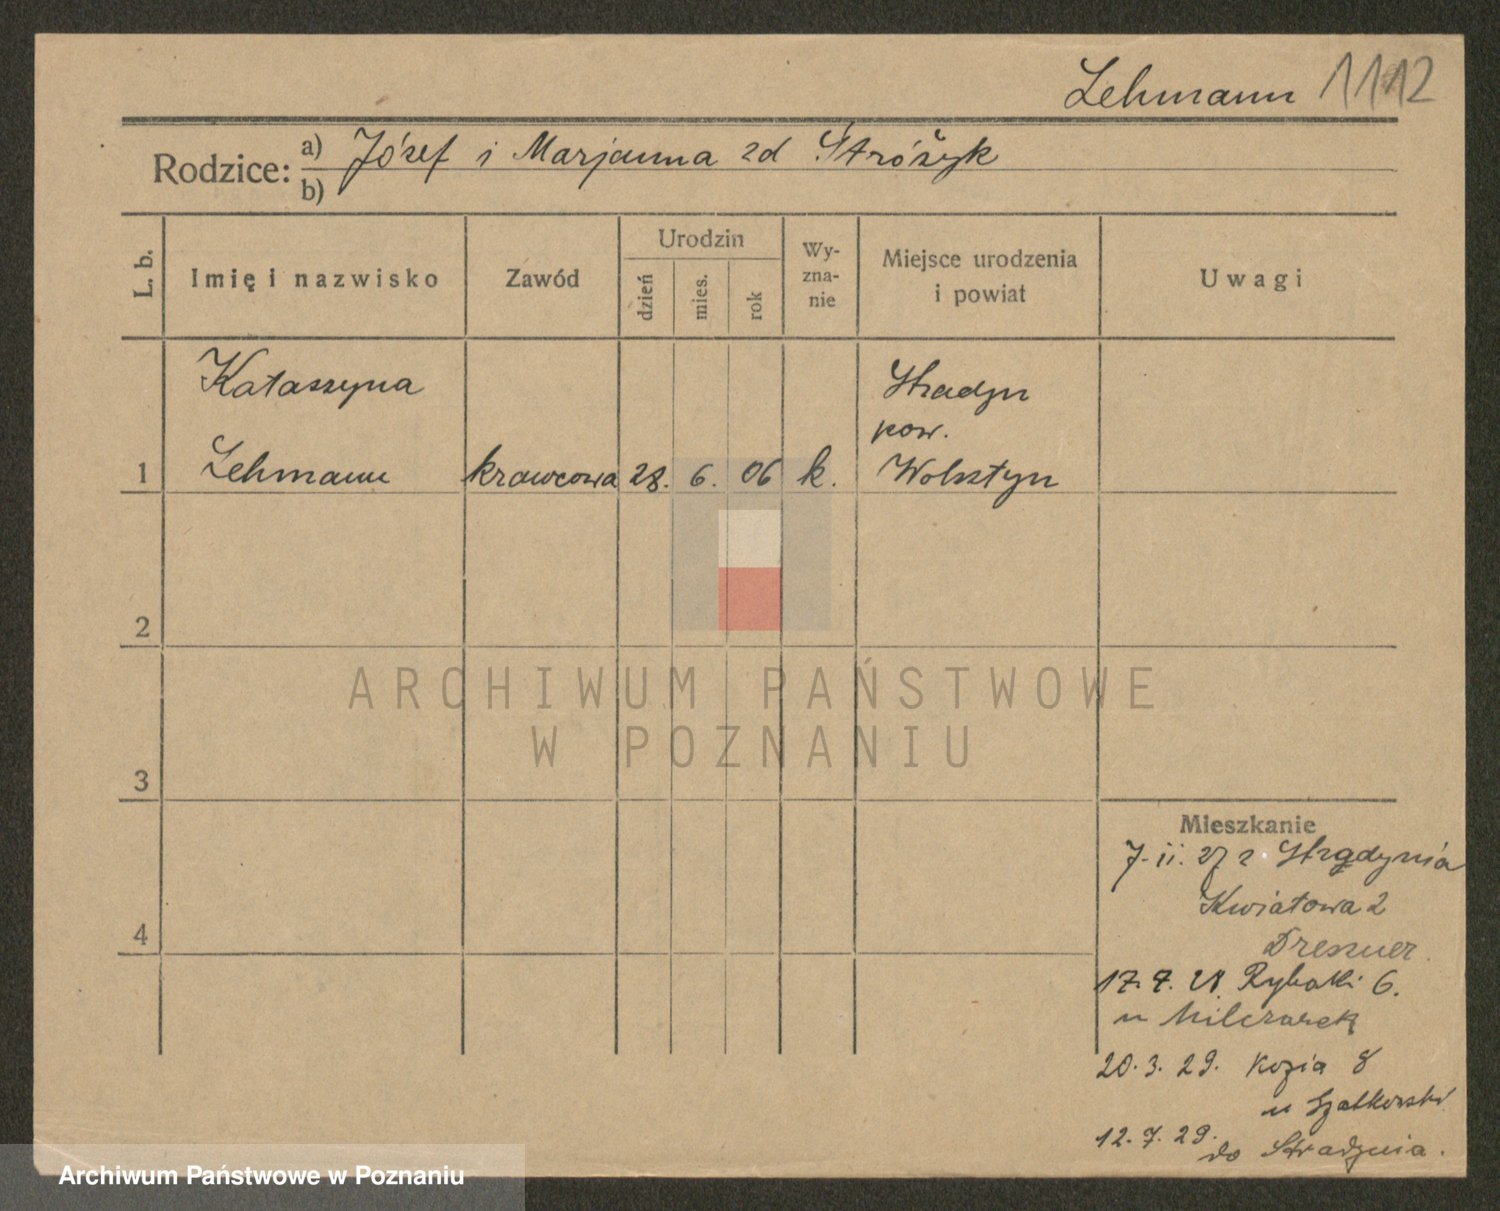 Lehmann 1112
Rodzice: a) Józef i Marjanna zd Stróżyk
b)
L. b.
Imię i nazwisko
Zawód
Urodzin
dzień
mies.
rok
Wy-
zna-
nie
Miejsce urodzenia
i powiat
Uwagi
Kataszyna
Stradzyn
pow.
1 Lehmann krawcowa 28. 6. 06 k. Wolsztyn
2
ARCHIWUM PAŃSTWOWE
W POZNANIU
3
Mieszkanie
7. 11. 27 z
Kwiatowa 2
4
Dreszner
17. 7. 28. Rybaki 6.
u Milczarek
20. 3. 29. Kozia 8
u
12. 7. 29.
do Stradzynia.
Archiwum Państwowe w Poznaniu